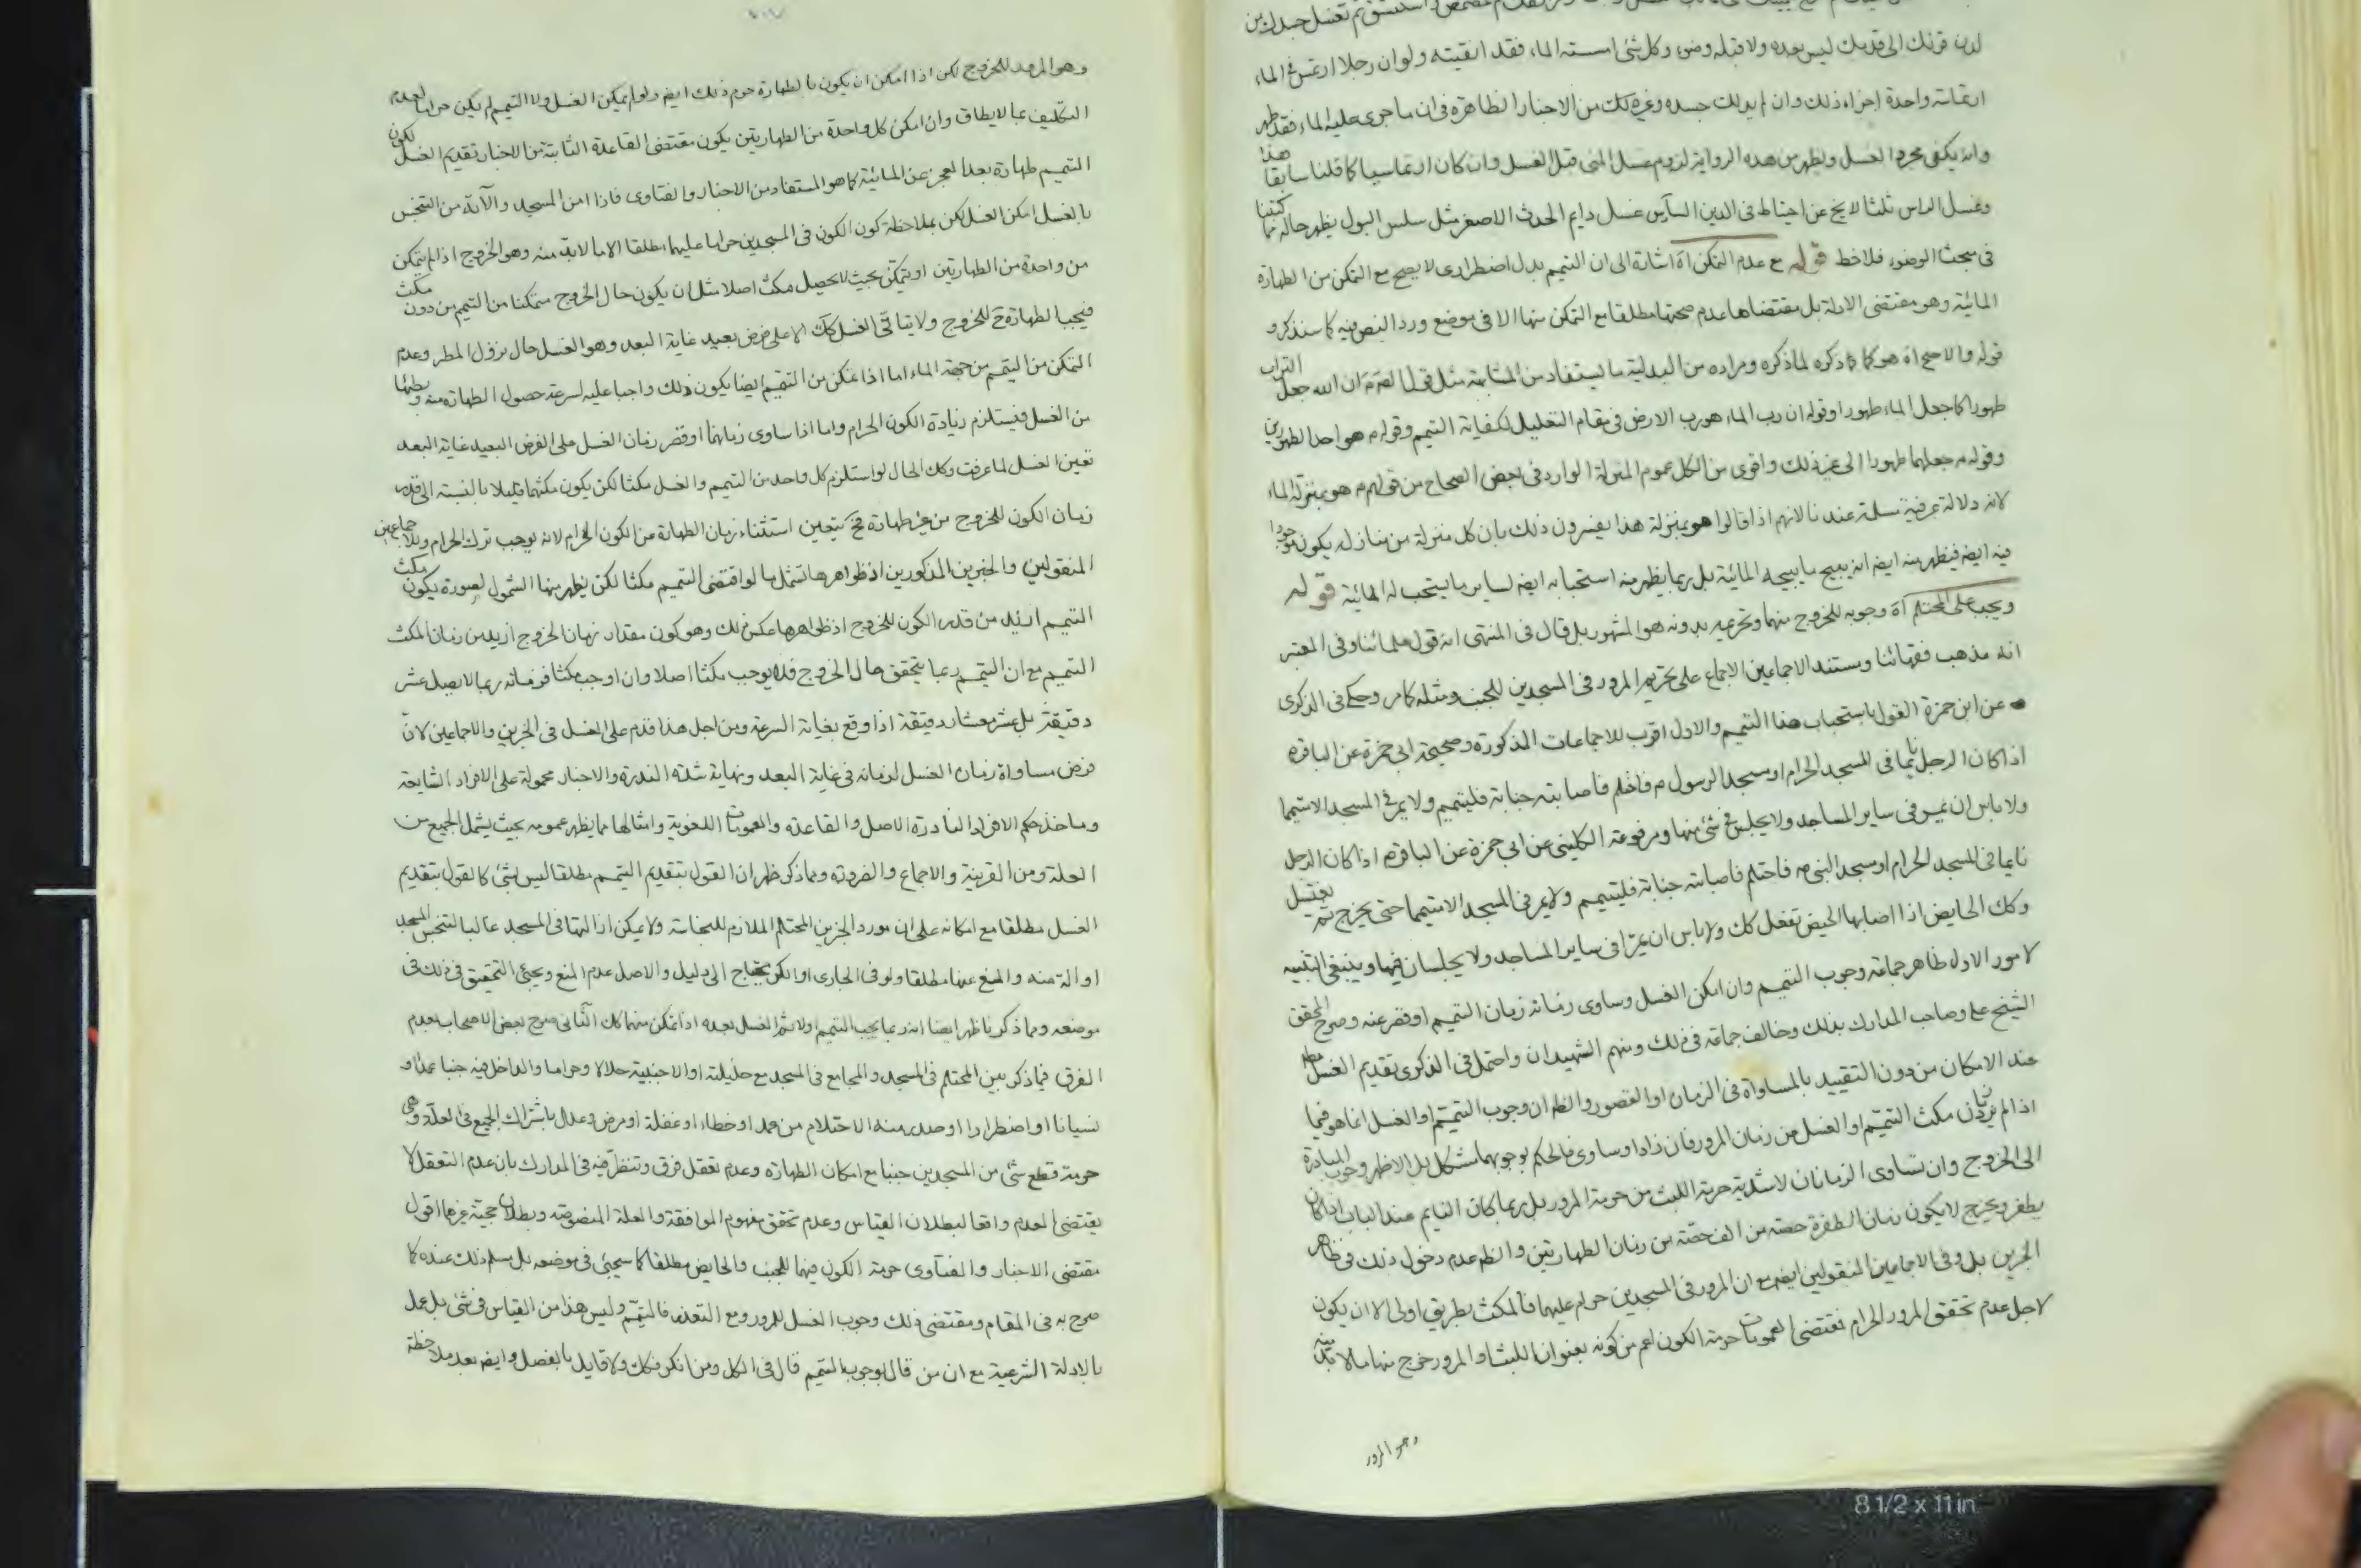 لدن قرنك الى قدميك ليس بعده ولا قبله وضوء وكل شئ امسسته الماء فقد انقيته ولو ان رجلا ارتمس فى الماء
ارتماسة واحدة اجزاه ذلك وان لم يدلك جسده وغير ذلك من الاخبار الظاهرة فى ان ما جرى عليه الماء فقد طهر
وانه يكفى مجرد الغسل ويظهر من هذه الرواية لزوم غسل المنى قبل الغسل وان كان ارتماسيا كما قلنا سابقا هذا
وغسل الراس ثلثا لا يخ عن احتياط فى الدين السابس غسل دايم الحدث الاصغر مثل سلس البول يظهر حاله مما كتبنا
فى مبحث الوضوء فلاحظ قوله مع عدم التمكن اه اشارة الى ان التيمم بدل اضطرارى لا يصح مع التمكن من الطهارة
المائية وهو مقتضى الادلة بل مقتضاها عدم صحتها مطلقا مع التمكن منها الا فى موضع ورد النص فيه كما سنذكره
قوله والاصح اه هو كما ذكره لما ذكره ومراده من البدلية ما يستفاد من المشابهة مثل قولهم ان الله جعل التراب
طهورا كما جعل الماء طهورا وقوله ان رب الماء هو رب الارض فى مقام التعليل لكفاية التيمم وقوله م هو احد الطهورين
وقوله م جعلهما طهورا الى غير ذلك واقوى من الكل عموم المنزلة الوارد فى بعض الصحاح من قولهم م هو بمنزلة الماء
لانه دلالة عرفية مسلمة عندنا لانهم اذا قالوا هو بمنزلة هذا يفسرون ذلك بان كل منزلة من منازله يكون موجودا
فيه ايضه فيظهر منه ايضه انه يبيح ما يبيحه المائية بل ربما يظهر منه استحبابه ايضه لساير ما يستحب له المائية قوله
ويجب على المحتلم اه وجوبه للخروج منهما وتحريمه بدونه هو المشهور بل قال فى المنتهى انه قول علمائنا وفى المعتبر
انه مذهب فقهائنا ومستند الاجماعين الاجماع على تحريم المرور فى المسجدين للجنب ومثله كما مر وحكى فى الذكرى
عن ابن حمزة القول باستحباب هذا التيمم والاول اقرب للاجماعات المذكورة وصحيحة ابى حمزة عن الباقر م
اذا كان الرجل نايما فى المسجد الحرام او مسجد الرسول م فاحتلم فاصابته جنابة فليتيمم ولا يمر فى المسجد الا متيمما
ولا باس ان يمر فى ساير المساجد ولا يجلس فى شئ منها ومرفوعة الكلينى عن ابى حمزة عن الباقر م اذا كان الرجل
نايما فى المسجد الحرام او مسجد النبى ص فاحتلم فاصابته جنابة فليتيمم ولا يمر فى المسجد الا متيمما حتى يخرج ثم يغتسل
وكك الحايض اذا اصابها الحيض تفعل كك ولا باس ان يمرا فى ساير المساجد ولا يجلسان فيها وينبغى التنبيه
لامور الاول ظاهر جماعة وجوب التيمم وان امكن الغسل وساوى زمانه زمان التيمم او قصر عنه وصرح المحقق
الشيخ على وصاحب المدارك بذلك وخالف جماعة فى ذلك ومنهم الشهيدان واحتمل فى الذكرى تقديم الغسل مطه
عند الامكان من دون التقييد بالمساواة فى الزمان او القصور والظه ان وجوب التيمم او الغسل انما هو فيما
اذا لم يزد زمان مكث التيمم او الغسل من زمان المرور فان زاد او ساوى فالحكم بوجوبهما مشكل بل الاظهر وجوب المبادرة
الى الخروج وان تساوى الزمانان لاشدية حرمة اللبث من حرمة المرور بل ربما كان النايم عند الباب اذا كان
يطفر ويخرج لا يكون زمان الطفرة حصة من الف حصة من زمان الطهارتين والظه عدم دخول ذلك فى ظاهر
الخبرين بل وفى الاجماعين المنقولين ايضه مع ان المرور فى المسجدين حرام عليهما فالمكث بطريق اولى الا ان يكون
لاجل عدم تحقق المرور الحرام فمقتضى العمومات حرمة الكون اعم من كونه بعنوان اللبث او المرور خرج منها ما لا بد منه
وهو المرور
وهو المرور للخروج لكن اذا امكن ان يكون بالطهارة حرم ذلك ايضه ولو لم يمكن الغسل ولا التيمم لم يكن حراما لعدم
التكليف بما لا يطاق وان امكن كل واحدة من الطهارتين يكون مقتضى القاعدة الثابتة من الاخبار تقديم الغسل لكون
التيمم طهارة بعد العجز عن المائية كما هو المستفاد من الاخبار والفتاوى فاذا امن المسجد والآته من التنجس
بالغسل امكن الغسل لكن بملاحظة كون الكون فى المسجدين حراما عليهما مطلقا الا ما لا بد منه وهو الخروج اذا لم يتمكن
من واحدة من الطهارتين او يتمكن بحيث لا يحصل مكث اصلا مثل ان يكون حال الخروج متمكنا من التيمم من دون مكث
فيجب الطهارة ح للخروج ولا يتاتى الغسل كك الا على فرض بعيد غاية البعد وهو الغسل حال نزول المطر وعدم
التمكن من التيمم من جهة الماء اما اذا تمكن من التيمم ايضا يكون ذلك واجبا عليه لسرعة حصول الطهارة منه وبطئها
من الغسل فيستلزم زيادة الكون الحرام واما اذا ساوى زمانهما او قصر زمان الغسل على الفرض البعيد غاية البعد
تعين الغسل لما عرفت وكك الحال لو استلزم كل واحد من التيمم والغسل مكثا لكن يكون مكثهما قليلا بالنسبة الى قدر
زمان الكون للخروج من غير طهارة فح يتعين استثناء زمان الطهارة من الكون الحرام لانه يوجب ترك الحرام وللاجماعين
المنقولين والخبرين المذكورين اذ ظواهرها تشمل ما لو اقتضى التيمم مكثا لكن يظهر منها الشمول لصورة يكون مكث
التيمم ازيد من قدر الكون للخروج اذ ظواهرها عكس ذلك وهو كون مقدار زمان الخروج ازيد من زمان المكث
التيمم مع ان التيمم ربما يتحقق حال الخروج فلا يوجب مكثا اصلا وان اوجب مكثا فزمانه ربما لا يصل عشر
دقيقة بل عشر معشار دقيقة اذا وقع بغاية السرعة ومن اجل هذا قدم على الغسل فى الخبرين والاجماعين لان
فرض مساواة زمان الغسل لزمانه فى غاية البعد ونهاية شدة الندرة والاخبار محمولة على الافراد الشايعة
وماخذ حكم الافراد النادرة الاصل والقاعدة والعمومات اللغوية وامثالها مما يظهر عمومه بحيث يشمل الجميع من
العلة ومن القرينة والاجماع والضرورة ومما ذكر ظهر ان القول بتقديم التيمم مطلقا ليس بشئ كالقول بتقديم
الغسل مطلقا مع امكانه على ان مورد الخبرين المحتلم الملازم للنجاسة ولا يمكن ازالتها فى المسجد غالبا لتنجس المسجد
او آلة منه والمنع عنها مطلقا ولو فى الجارى او الكر يحتاج الى دليل والاصل عدم المنع ويجئ التحقيق فى ذلك فى
موضعه ومما ذكرنا ظهر ايضا انه ربما يجب التيمم اولا ثم الغسل بعده اذا تمكن منهما كك الثانى صرح بعض الاصحاب بعدم
الفرق فيما ذكر بين المحتلم فى المسجد والمجامع فى المسجد مع حليلته او الاجنبية حلالا وحراما والداخل فيه جنبا عمدا و
نسيانا او اضطرارا او صدر منه الاحتلام من عمد او خطاء او غفلة او مرض وعلل باشتراك الجميع فى العلة وهى
حرمة قطع شئ من المسجدين جنبا مع امكان الطهارة وعدم تعقل فرق وتنظر فيه فى المدارك بان عدم التعقل لا
يقتضى العدم واقعا لبطلان القياس وعدم تحقق مفهوم الموافقة والعلة المنصوصة وبطلان حجية غيرهما اقول
مقتضى الاخبار والفتاوى حرمة الكون فيهما للجنب والحايض مطلقا كما سيجئ فى موضعه بل مسلم ذلك عنده كما
صرح به فى المقام ومقتضى ذلك وجوب الغسل للمرور ومع التعذر فالتيمم وليس هذا من القياس فى شئ بل عمل
بالادلة الشرعية مع ان من قال بوجوب التيمم قال فى الكل ومن انكر فكك ولا قايل بالفصل وايضه بعد ملاحظة
8 1/2 x 11 in.